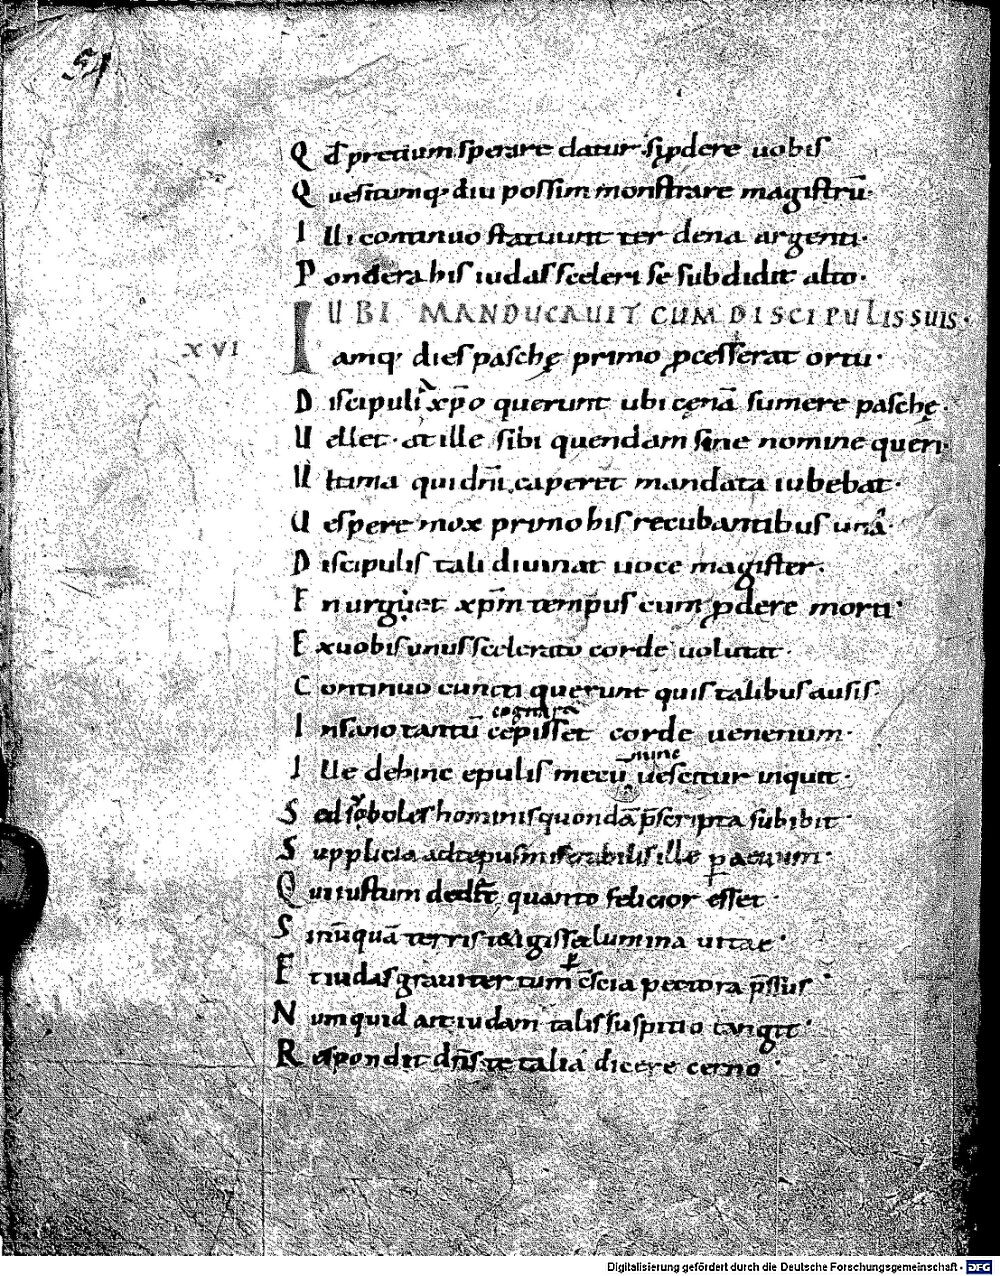 51
Q d̄ pretium sperare datur si ꝓdere uobis
Q uesitumq· diu possim monstrare magistrū·
I lli continuo statuunt ter dena argenti·
P ondera his iudas sceleri se subdidit alto·
UBI MANDUCAUIT CUM DISCIPULIS SUIS·
XVI I amq· dies paschę primo ꝓcesserat ortu·
D iscipuli xp̄o querunt ubi cęnā sumere paschę·
U ellet· at ille sibi quendam sine nomine queri·
U ltima qui dn̄i caperet mandata iubebat·
U espere mox primo bis recubantibus unā·
D iscipulis tali diuinat uoce magister·
E n urguet xp̄m tempus cum ꝓdere morti·
E x uobis unus scelerato corde uolutat·
C ontinuo cuncti querunt quis talibus ausis
cognita
I nsano tantū cepisset corde uenenum·
nunc
I lle dehinc epulis mecū uescitur inquit·
S ed soboles hominis quondā p̄scripta subibit·
S upplicia ad tepus miserabilis ille pactum·
Q ui iustum dedit, quanto felicior esset·
S i nūquā terris tetigisset lumina uitae·
E t iudas grauiter tum c̄scia pectora p̄ssus
N umquid ait iudam talis suspitio tangit·
R espondit dn̄s te talia dicere cerno·
Digitalisierung gefördert durch die Deutsche Forschungsgemeinschaft - DFG